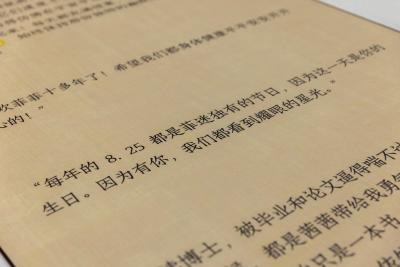 欢菲菲十多年了！希望我们都身体健康平平安安开开
心的！”
“每年的 8.25 都是菲迷独有的节日，因为这一天是你的
生日。因为有你，我们都看到耀眼的星光。”
博士，被毕业和论文逼得喘不过
都是茜茜带给我勇气
只是一本书